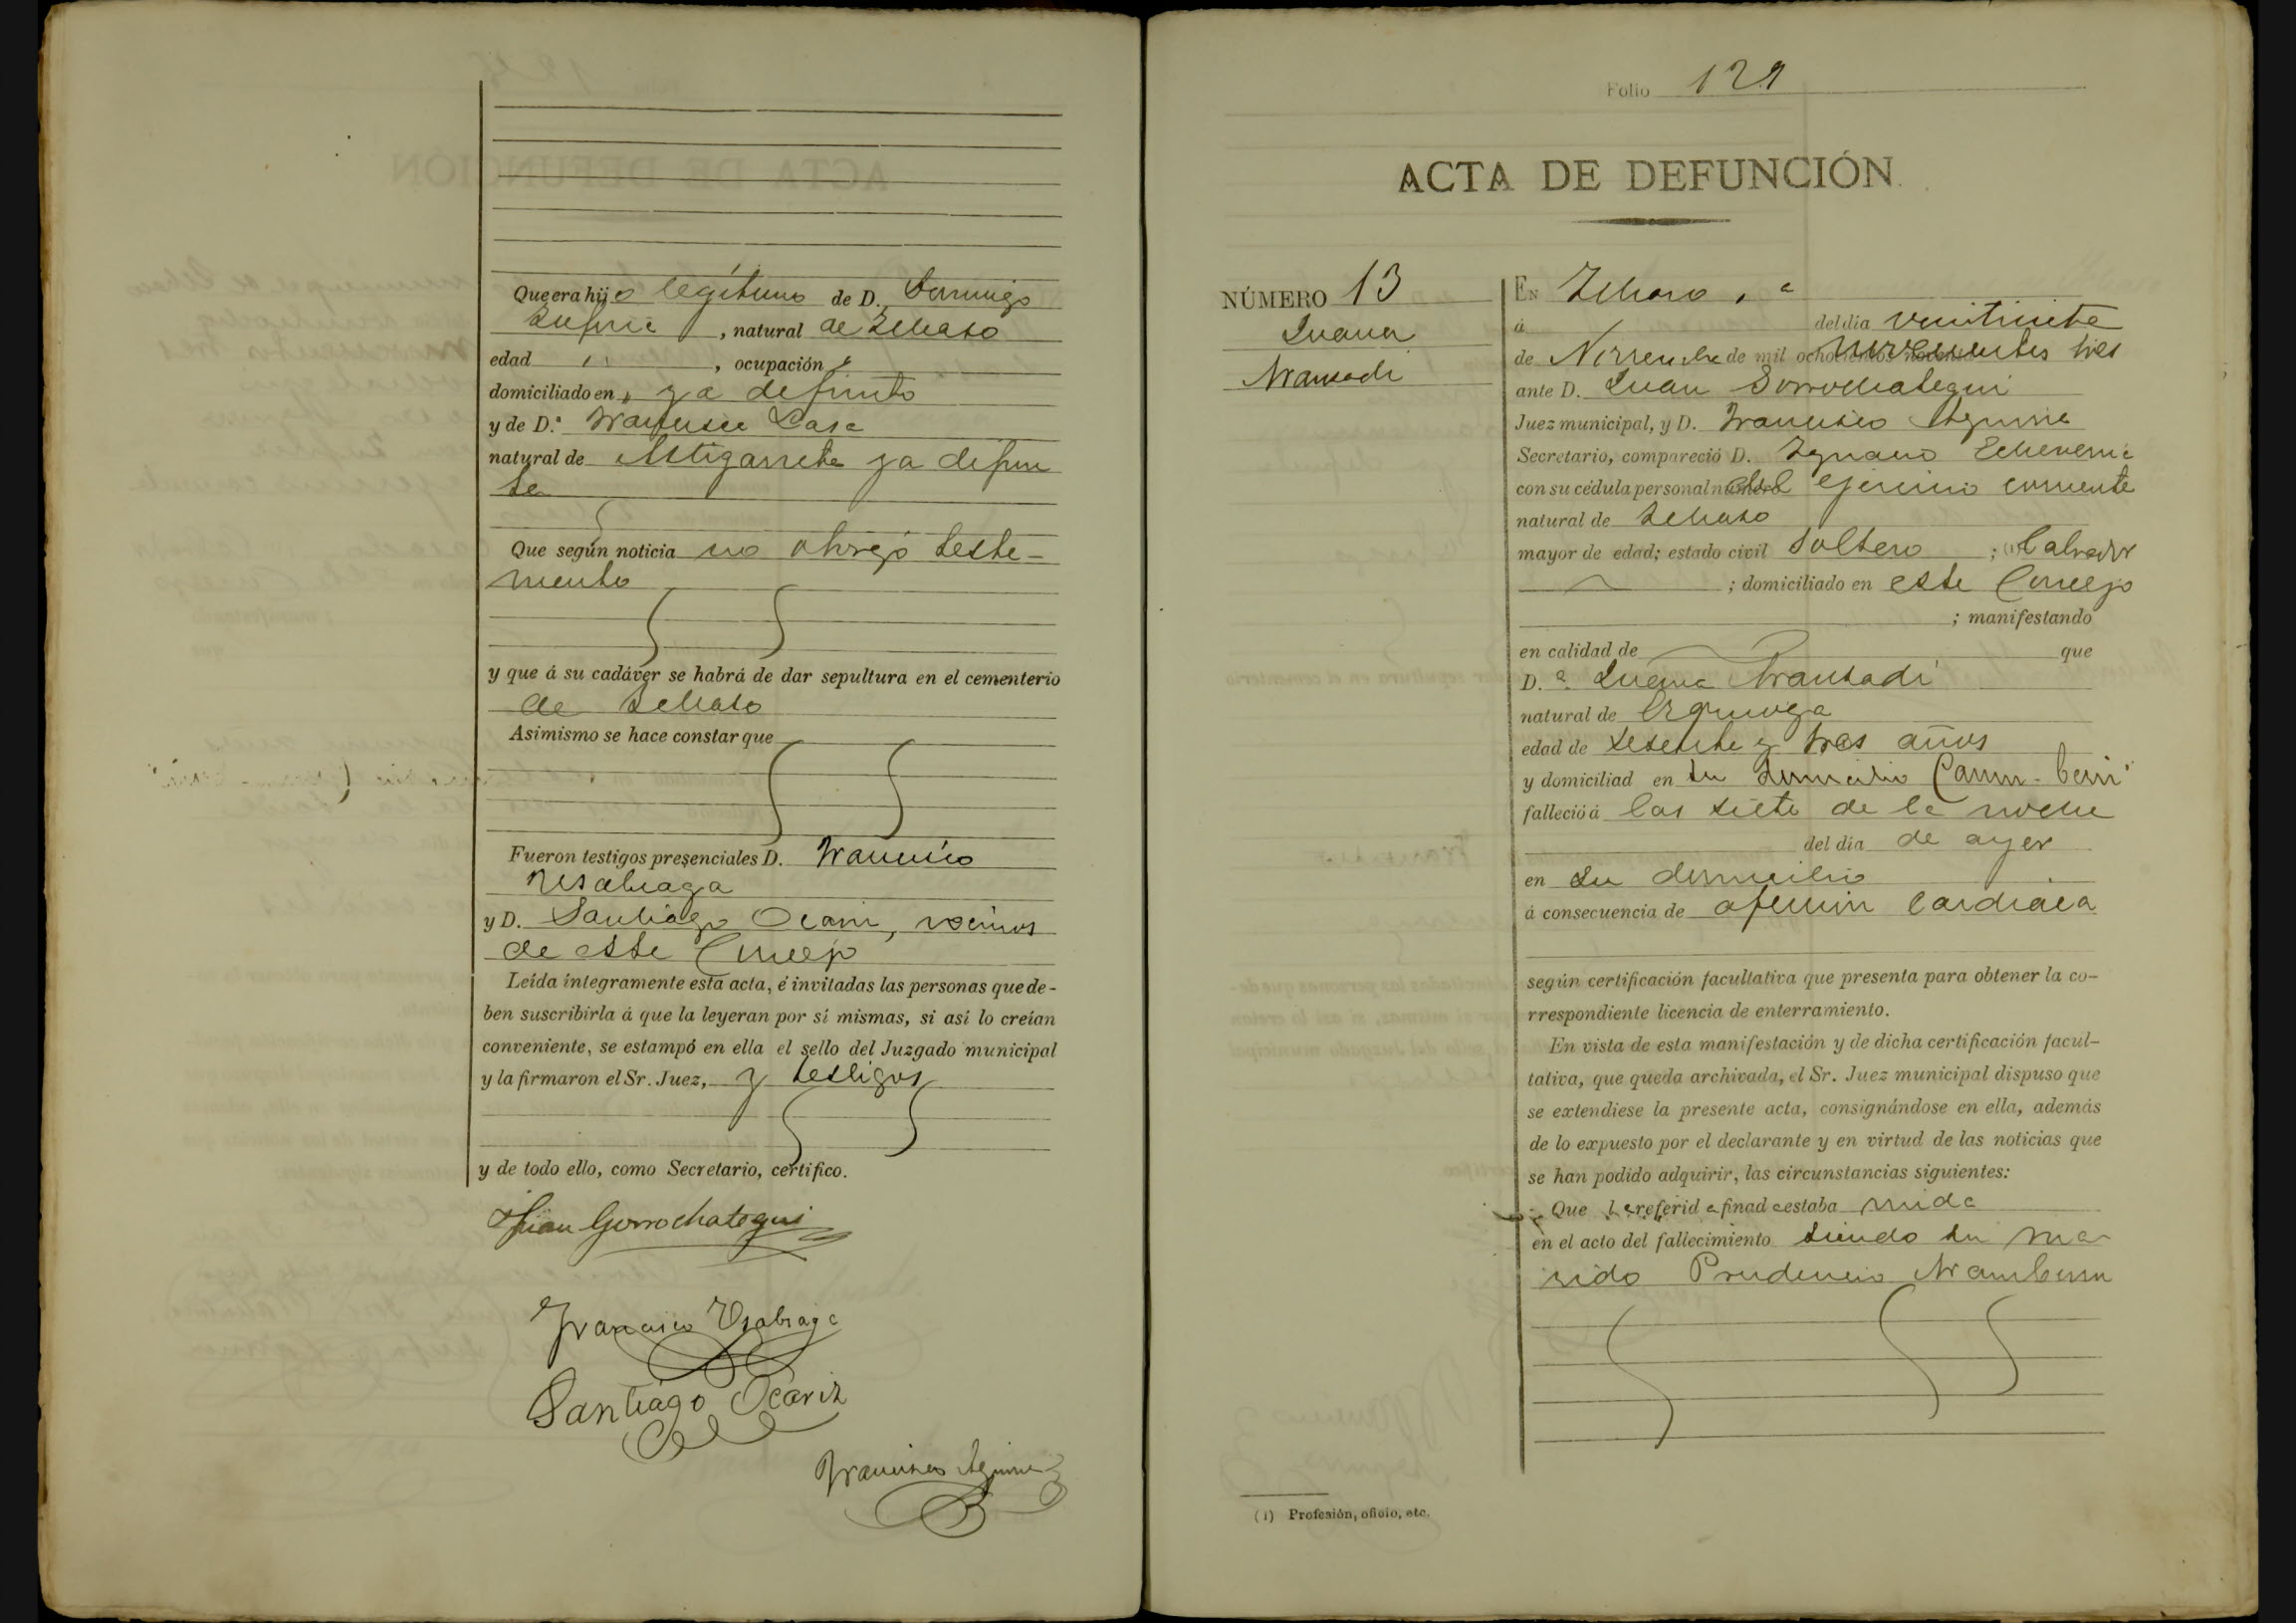 Que era hijo legítimo de D. Domingo
, natural de Ichaso
edad , ocupación
domiciliado en ya defunto
y de D.ª Francisca Lasa
natural de Astigarreta ya difun
ta
Que según noticia no otorgó testa-
mento
y que á su cadáver se habrá de dar sepultura en el cementerio
de Ichaso
Asimismo se hace constar que
Fueron testigos presenciales D. Francisco
Usabiaga
y D. Santiago Ocariz, vecinos
de este Concejo
Leída íntegramente esta acta, é invitadas las personas que de-
ben suscribirla á que la leyeran por sí mismas, si así lo creían
conveniente, se estampó en ella el sello del Juzgado municipal
y la firmaron el Sr. Juez, y testigos
y de todo ello, como Secretario, certifico.
Juan Gorrochategui
Francisco Usabiaga
Santiago Ocariz
Francisco Aguirre
Folio 129
ACTA DE DEFUNCIÓN
NÚMERO 13
Juana
Aramsadi
En Ichaso, a
á del día veintisiete
de Noviembre de mil ochocientos novecientos tres
ante D. Juan Gorrochategui
Juez municipal, y D. Francisco Aguirre
Secretario, compareció D. Ignacio Echeverria
con su cédula personal número del ejercicio corriente
natural de Ichaso
mayor de edad; estado civil soltero ; (1) labrador
; domiciliado en este Concejo
; manifestando
en calidad de que
D.ª Juana
natural de Ezquioga
edad de sesenta y tres años
y domiciliad en su domicilio
falleció á las siete de la noche
del día de ayer
en su domicilio
á consecuencia de afección cardiaca
según certificación facultativa que presenta para obtener la co-
rrespondiente licencia de enterramiento.
En vista de esta manifestación y de dicha certificación facul-
tativa, que queda archivada, el Sr. Juez municipal dispuso que
se extendiese la presente acta, consignándose en ella, además
de lo expuesto por el declarante y en virtud de las noticias que
se han podido adquirir, las circunstancias siguientes:
Que la referida finada estaba viuda
en el acto del fallecimiento siendo su ma-
rido Prudencio Aramburu
(1) Profesión, oficio, etc.